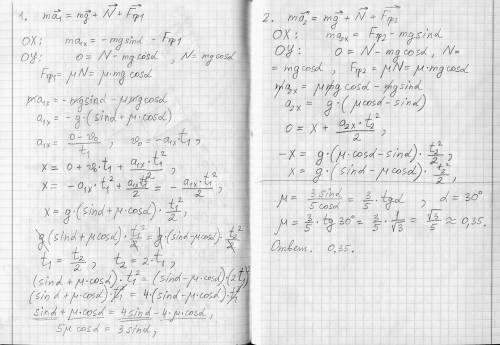 1. ma⃗₁ = mg⃗ + N⃗ + F⃗тр1
OX: ma₁ₓ = -mgsinα - Fтр1
OY: 0 = N - mgcosα, N = mgcosα
Fтр1 = μN = μ·mgcosα
ma₁ₓ = -mgsinα - μmgcosα
a₁ₓ = -g·(sinα + μcosα)
a₁ₓ = (0 - v₀)/t₁, v₀ = -a₁ₓt₁;
x = 0 + v₀·t₁ + a₁ₓ·t₁²/2;
x = -a₁ₓ·t₁² + a₁ₓt₁²/2 = -a₁ₓ·t₁²/2;
x = g·(sinα + μcosα)·t₁²/2;
g(sinα + μcosα)·t₁²/2 = g·(sinα - μcosα)·t₂²/2
t₁ = t₂/2, t₂ = 2·t₁,
(sinα + μcosα)·t₁² = (sinα - μcosα)·(2t₁)²
(sinα + μcosα)·t₁² = 4·(sinα - μcosα)·t₁²
sinα + μ·cosα = 4sinα - 4·μ·cosα,
5μcosα = 3sinα,
2. ma⃗₂ = mg⃗ + N⃗ + F⃗тр2
OX: ma₂ₓ = Fтр2 - mgsinα
OY: 0 = N - mgcosα, N=
= mgcosα, Fтр2 = μN = μ·mgcosα
ma₂ₓ = μmgcosα - mgsinα
a₂ₓ = g·(μcosα - sinα)
0 = x + a₂ₓ·t₂²/2;
-x = g·(μ·cosα - sinα)·t₂²/2,
x = g·(sinα - μcosα)·t₂²/2,
μ = 3sinα/5cosα = 3/5·tgα, α = 30°
μ = 3/5·tg30° = 3/5·1/√3 = √3/5 ≈ 0,35.
Ответ. 0,35.